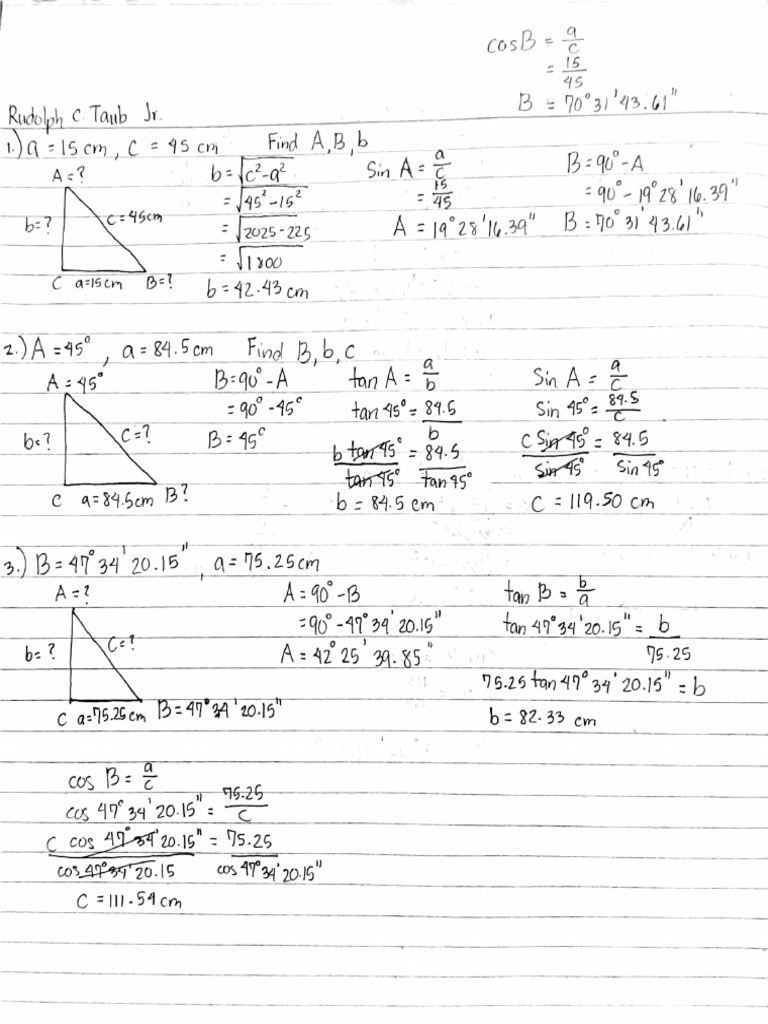 cosB = a/c
= 15/45
B = 70°31'43.61"
Rudolph C. Taub Jr.
1.) a = 15 cm, c = 45 cm Find A, B, b
A = ?
b = ?
c = 45cm
C a = 15cm B = ?
b = √c²-a²
= √45²-15²
= √2025-225
= √1800
b = 42.43 cm
Sin A = a/c
= 15/45
A = 19°28'16.39"
B = 90°-A
= 90°-19°28'16.39"
B = 70°31'43.61"
2.) A = 45°, a = 84.5cm Find B, b, c
A = 45°
b = ?
c = ?
C a = 84.5cm B?
B = 90°-A
= 90°-45°
B = 45°
tan A = a/b
tan 45° = 84.5/b
b tan 45°/tan 45° = 84.5/tan 45°
b = 84.5 cm
Sin A = a/c
Sin 45° = 84.5/c
c Sin 45°/Sin 45° = 84.5/Sin 45°
C = 119.50 cm
3.) B = 47°34'20.15", a = 75.25cm
A = ?
b = ?
c = ?
C a = 75.25cm B = 47°34'20.15"
A = 90°-B
= 90°-47°34'20.15"
A = 42°25'39.85"
tan B = b/a
tan 47°34'20.15" = b/75.25
75.25 tan 47°34'20.15" = b
b = 82.33 cm
cos B = a/c
cos 47°34'20.15" = 75.25/c
c cos 47°34'20.15"/cos 47°34'20.15 = 75.25/cos 47°34'20.15"
C = 111.54 cm